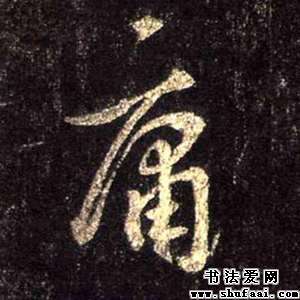 庸
书法爱网
www.shufaai.com